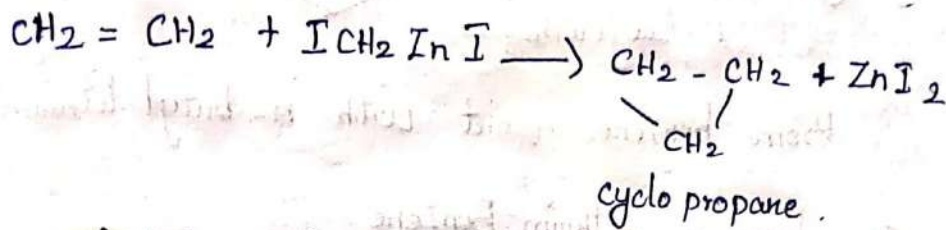 CH2 = CH2 + ICH2 In I ⟶ CH2 - CH2 + ZnI2
CH2
cyclo propane.